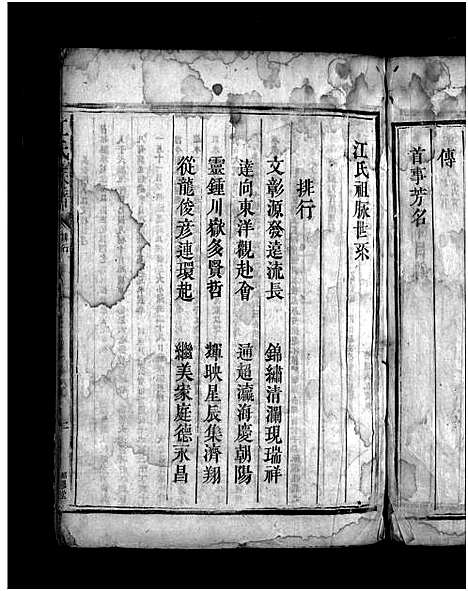 傳
首事芳名
江氏祖脉世系
排行
文彰源發遠流長　錦繡清瀾現瑞祥
達向東洋觀赴會　通超瀛海慶朝陽
靈鍾川嶽多賢哲　輝映星辰集濟翔
從龍俊彥連環起　繼美家庭德永昌